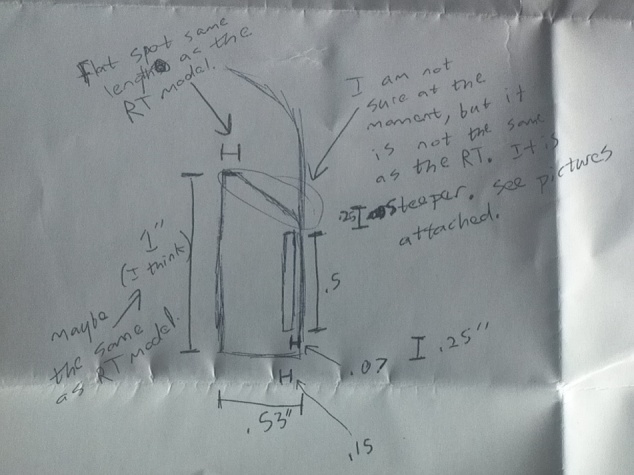 Flat spot same
length as the
RT model.
I am not
sure at the
moment, but it
is not the same
as the RT. It is
steeper. See pictures
attached.
.25
1"
(I think)
maybe
the same
as RT model.
.5
.07
.25"
.53"
.15